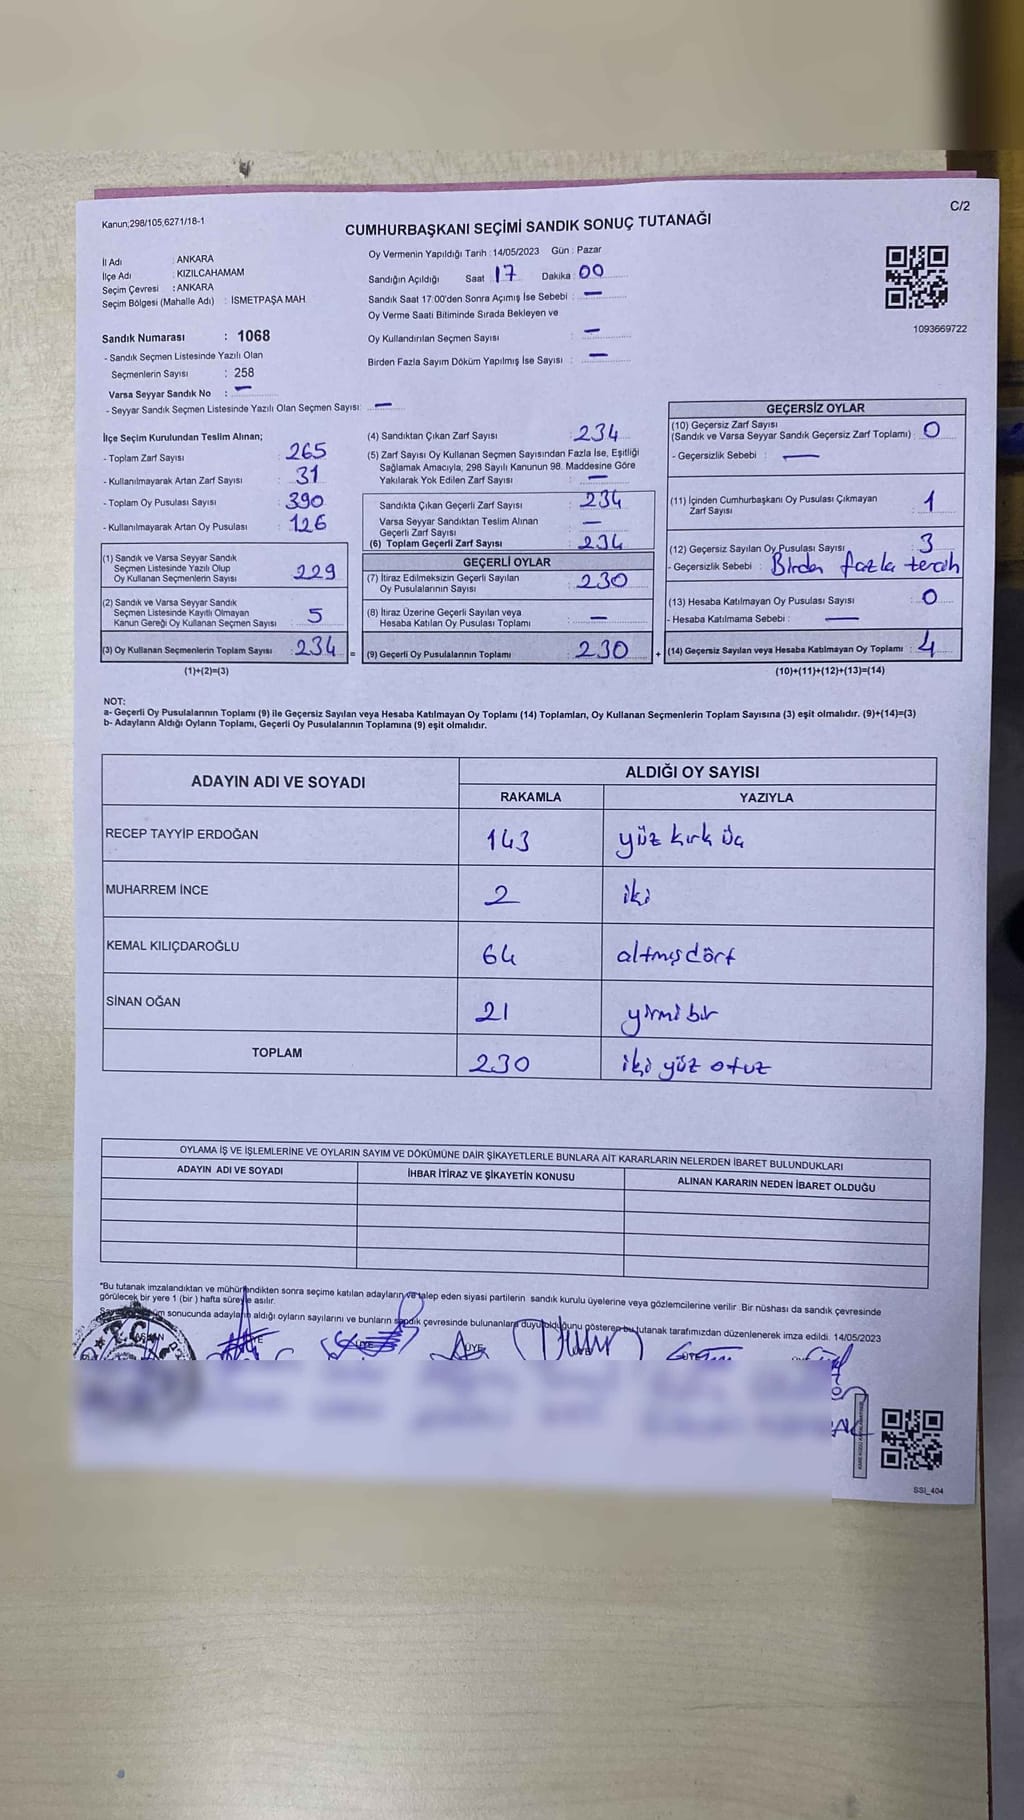 Kanun,298/105,6271/18-1
C/2
CUMHURBAŞKANI SEÇİMİ SANDIK SONUÇ TUTANAĞI
İl Adı : ANKARA
İlçe Adı : KIZILCAHAMAM
Seçim Çevresi : ANKARA
Seçim Bölgesi (Mahalle Adı) : İSMETPAŞA MAH
Sandık Numarası : 1068
- Sandık Seçmen Listesinde Yazılı Olan
Seçmenlerin Sayısı : 258
Varsa Seyyar Sandık No : —
- Seyyar Sandık Seçmen Listesinde Yazılı Olan Seçmen Sayısı: —
Oy Vermenin Yapıldığı Tarih : 14/05/2023 Gün : Pazar
Sandığın Açıldığı Saat 17 Dakika 00
Sandık Saat 17:00'den Sonra Açımış İse Sebebi : —
Oy Verme Saati Bitiminde Sırada Bekleyen ve
Oy Kullandırılan Seçmen Sayısı : —
Birden Fazla Sayım Döküm Yapılmış İse Sayısı : —
1093669722
İlçe Seçim Kurulundan Teslim Alınan;
- Toplam Zarf Sayısı : 265
- Kullanılmayarak Artan Zarf Sayısı : 31
- Toplam Oy Pusulası Sayısı : 390
- Kullanılmayarak Artan Oy Pusulası : 126
(1) Sandık ve Varsa Seyyar Sandık
Seçmen Listesinde Yazılı Olup
Oy Kullanan Seçmenlerin Sayısı : 229
(2) Sandık ve Varsa Seyyar Sandık
Seçmen Listesinde Kayıtlı Olmayan
Kanun Gereği Oy Kullanan Seçmen Sayısı : 5
(3) Oy Kullanan Seçmenlerin Toplam Sayısı : 234 =
(1)+(2)=(3)
(4) Sandıktan Çıkan Zarf Sayısı : 234
(5) Zarf Sayısı Oy Kullanan Seçmen Sayısından Fazla İse, Eşitliği
Sağlamak Amacıyla, 298 Sayılı Kanunun 98. Maddesine Göre
Yakılarak Yok Edilen Zarf Sayısı : —
Sandıkta Çıkan Geçerli Zarf Sayısı : 234
Varsa Seyyar Sandıktan Teslim Alınan
Geçerli Zarf Sayısı : —
(6) Toplam Geçerli Zarf Sayısı : 234
GEÇERLİ OYLAR
(7) İtiraz Edilmeksizin Geçerli Sayılan
Oy Pusulalarının Sayısı : 230
(8) İtiraz Üzerine Geçerli Sayılan veya
Hesaba Katılan Oy Pusulası Toplamı : —
(9) Geçerli Oy Pusulalarının Toplamı : 230 +
GEÇERSİZ OYLAR
(10) Geçersiz Zarf Sayısı
(Sandık ve Varsa Seyyar Sandık Geçersiz Zarf Toplamı) : 0
- Geçersizlik Sebebi : —
(11) İçinden Cumhurbaşkanı Oy Pusulası Çıkmayan
Zarf Sayısı : 1
(12) Geçersiz Sayılan Oy Pusulası Sayısı : 3
- Geçersizlik Sebebi : Birden fazla tercih
(13) Hesaba Katılmayan Oy Pusulası Sayısı : 0
- Hesaba Katılmama Sebebi : —
(14) Geçersiz Sayılan veya Hesaba Katılmayan Oy Toplamı : 4
(10)+(11)+(12)+(13)=(14)
NOT:
a- Geçerli Oy Pusulalarının Toplamı (9) ile Geçersiz Sayılan veya Hesaba Katılmayan Oy Toplamı (14) Toplamları, Oy Kullanan Seçmenlerin Toplam Sayısına (3) eşit olmalıdır. (9)+(14)=(3)
b- Adayların Aldığı Oyların Toplamı, Geçerli Oy Pusulalarının Toplamına (9) eşit olmalıdır.
ADAYIN ADI VE SOYADI
ALDIĞI OY SAYISI
RAKAMLA YAZIYLA
RECEP TAYYİP ERDOĞAN 143 yüz kırk üç
MUHARREM İNCE 2 iki
KEMAL KILIÇDAROĞLU 64 altmışdört
SİNAN OĞAN 21 yirmi bir
TOPLAM 230 iki yüz otuz
OYLAMA İŞ VE İŞLEMLERİNE VE OYLARIN SAYIM VE DÖKÜMÜNE DAİR ŞİKAYETLERLE BUNLARA AİT KARARLARIN NELERDEN İBARET BULUNDUKLARI
ADAYIN ADI VE SOYADI İHBAR İTİRAZ VE ŞİKAYETİN KONUSU ALINAN KARARIN NEDEN İBARET OLDUĞU
*Bu tutanak imzalandıktan ve mühürlendikten sonra seçime katılan adayların ve talep eden siyasi partilerin sandık kurulu üyelerine veya gözlemcilerine verilir. Bir nüshası da sandık çevresinde
görülecek bir yere 1 (bir ) hafta süreyle asılır.
sonucunda adayların aldığı oyların sayılarını ve bunların sandık çevresinde bulunanlara duyulduğunu gösteren bu tutanak tarafımızdan düzenlenerek imza edildi. 14/05/2023
ÜYE
SSI_404